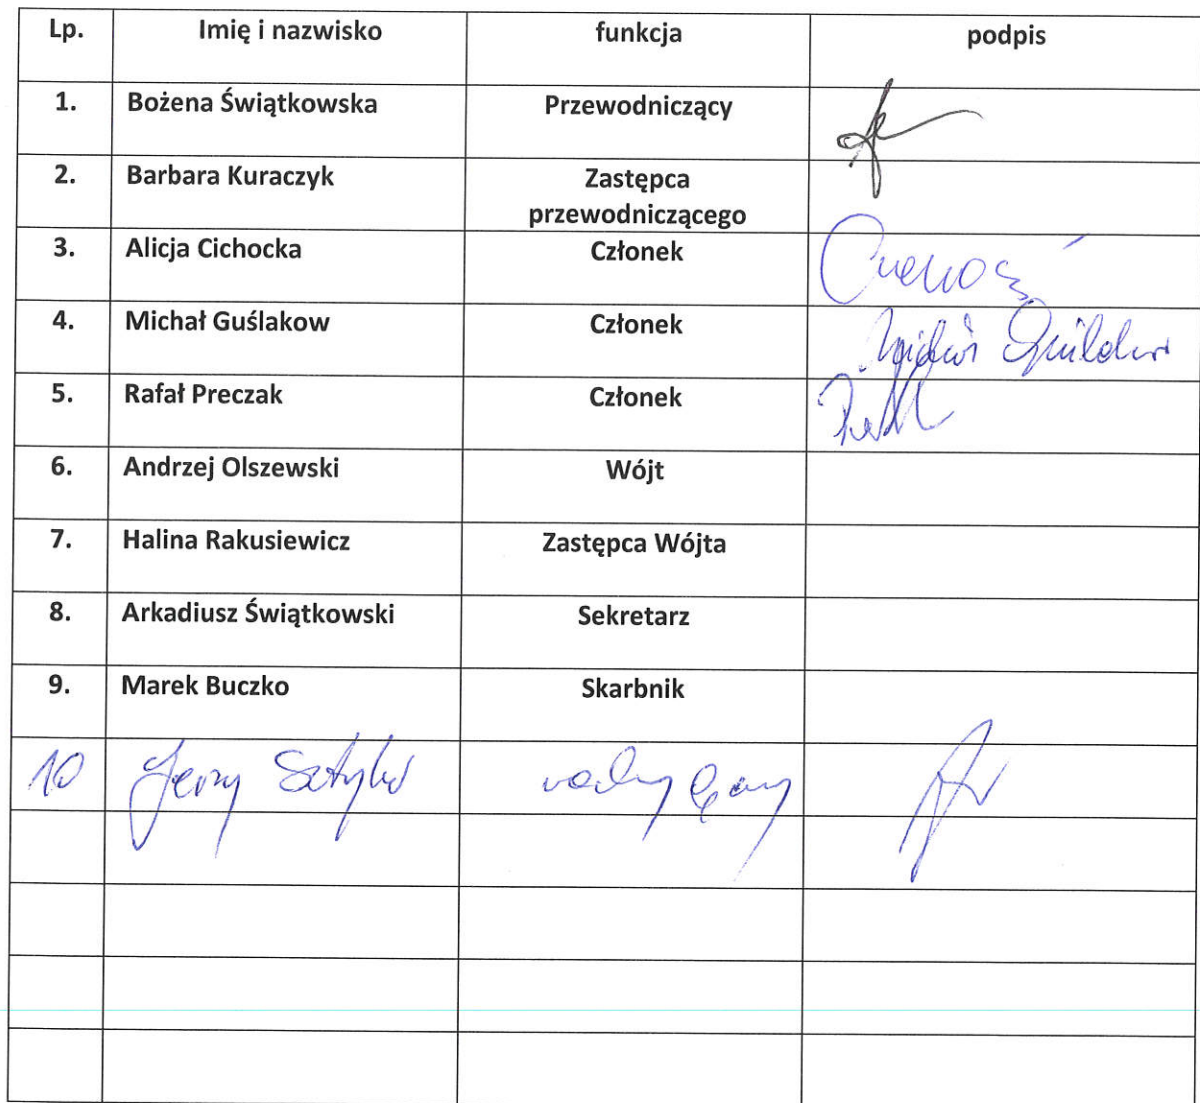 Lp. Imię i nazwisko funkcja podpis
1. Bożena Świątkowska Przewodniczący
2. Barbara Kuraczyk Zastępca
przewodniczącego
3. Alicja Cichocka Członek
4. Michał Guślakow Członek
5. Rafał Preczak Członek
6. Andrzej Olszewski Wójt
7. Halina Rakusiewicz Zastępca Wójta
8. Arkadiusz Świątkowski Sekretarz
9. Marek Buczko Skarbnik
10 Jerzy